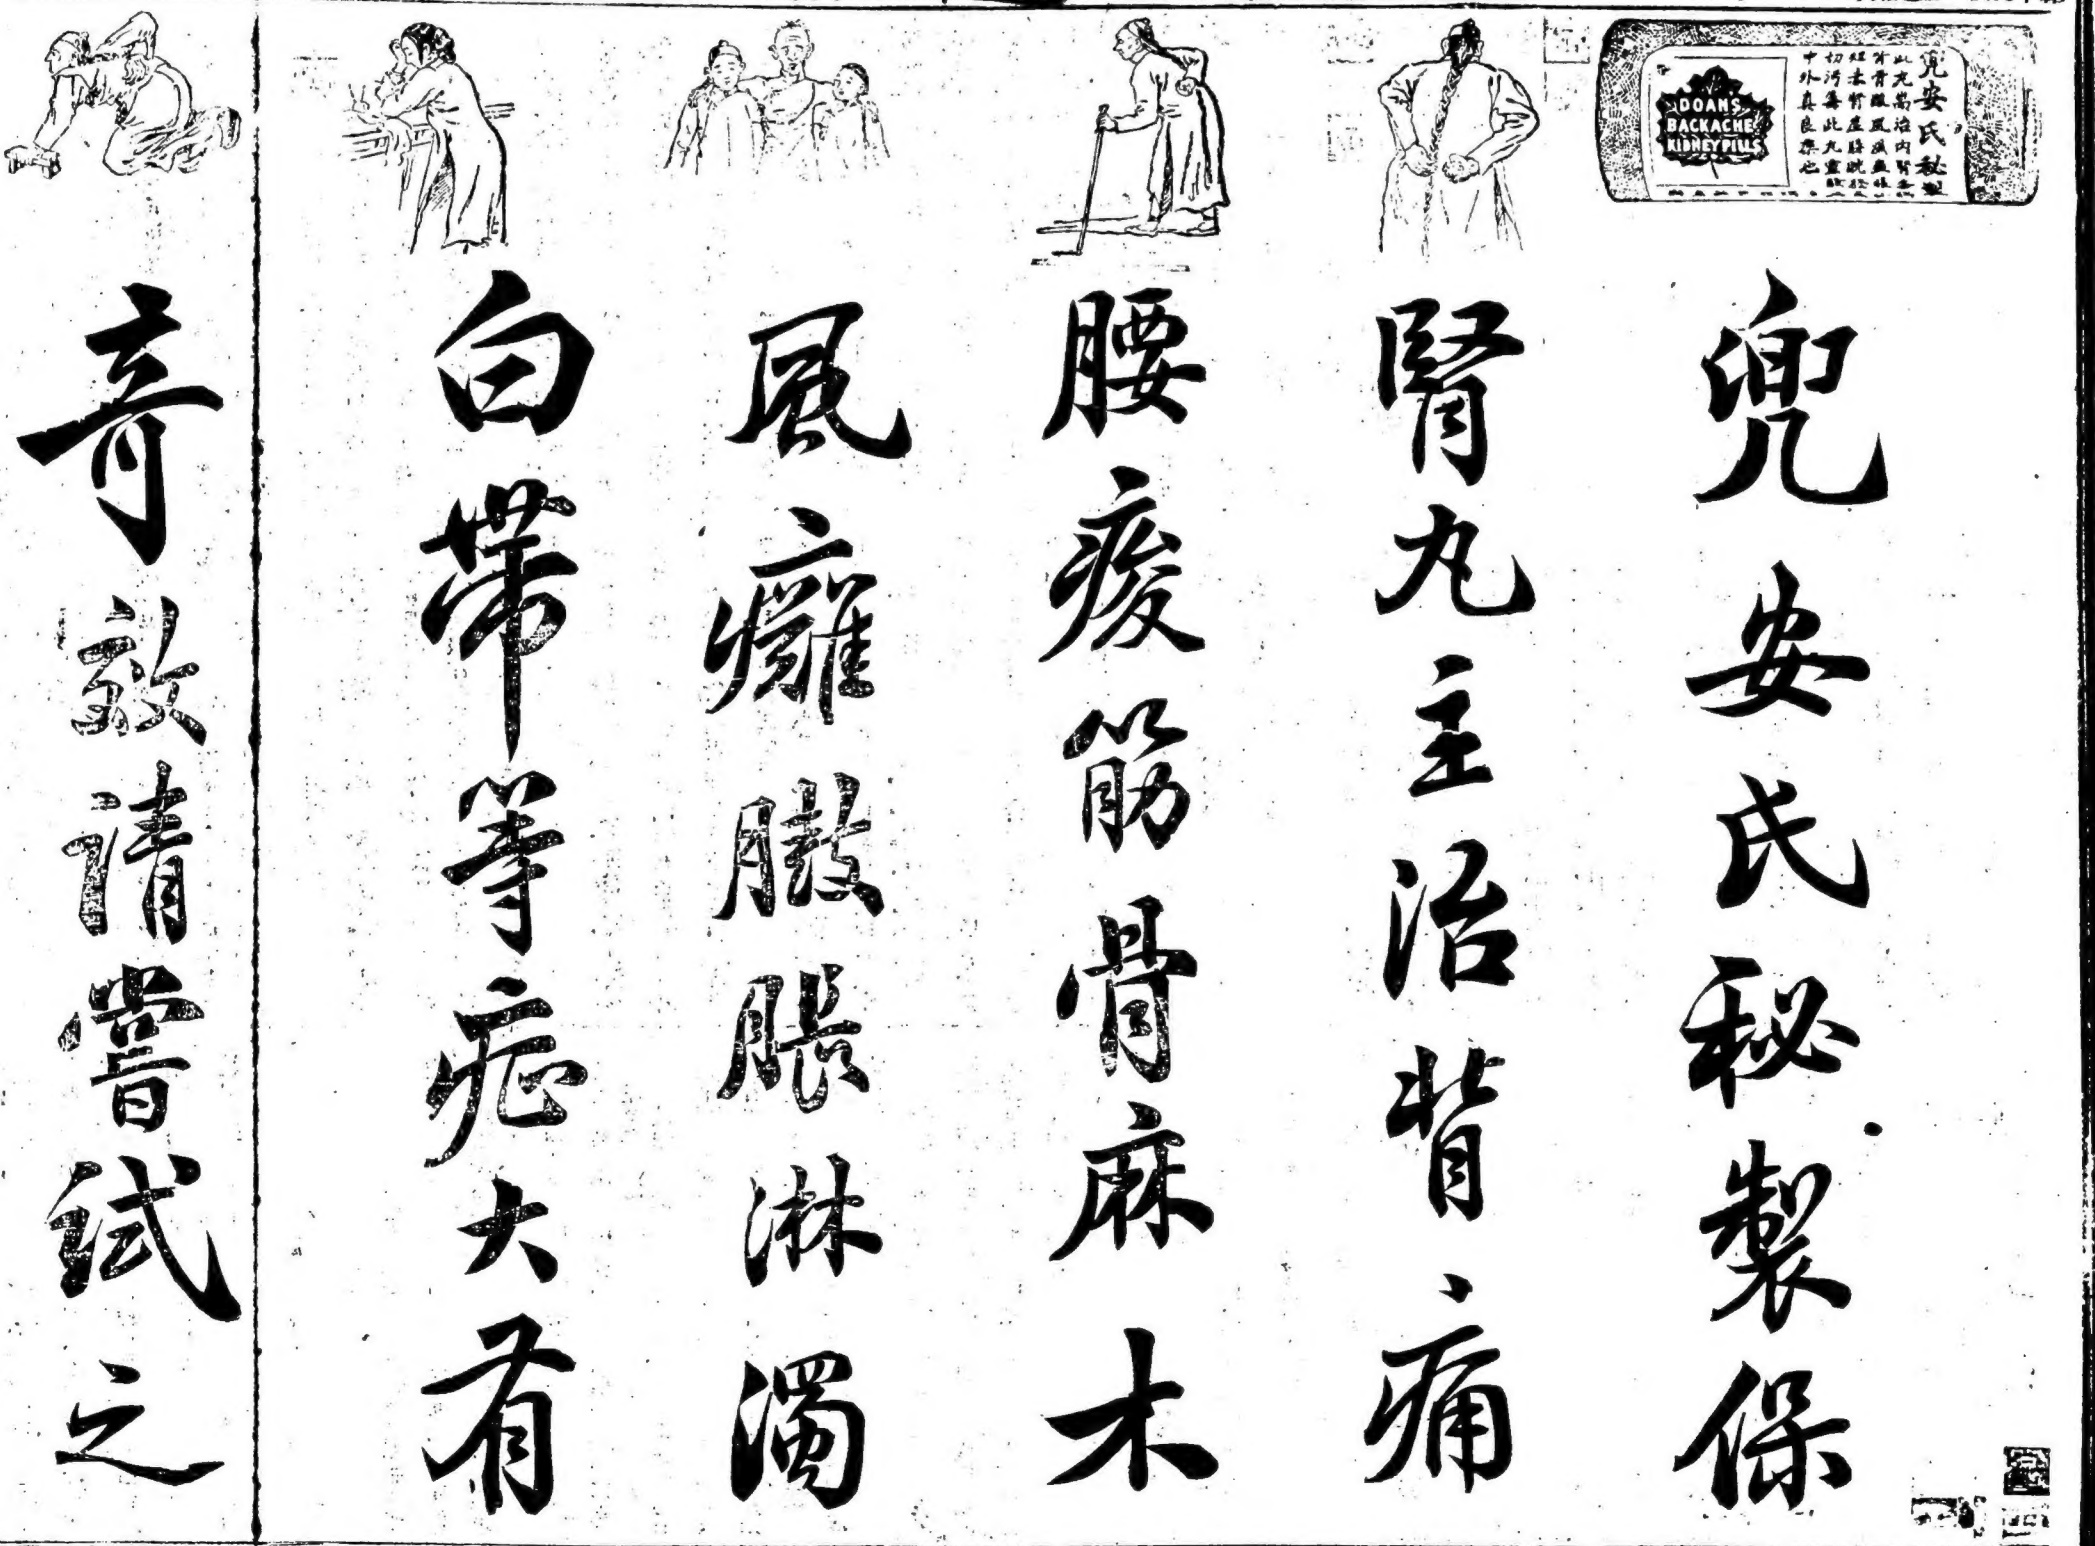 DOANS
BACKACHE
KIDNEY PILLS
兜安氏秘製
此丸耑治內腎
中外真良藥也
兜安氏秘製保
腎丸主治背痛
腰痠筋骨麻木
風癱臌脹淋濁
白帶等症大有
奇效請嘗試之